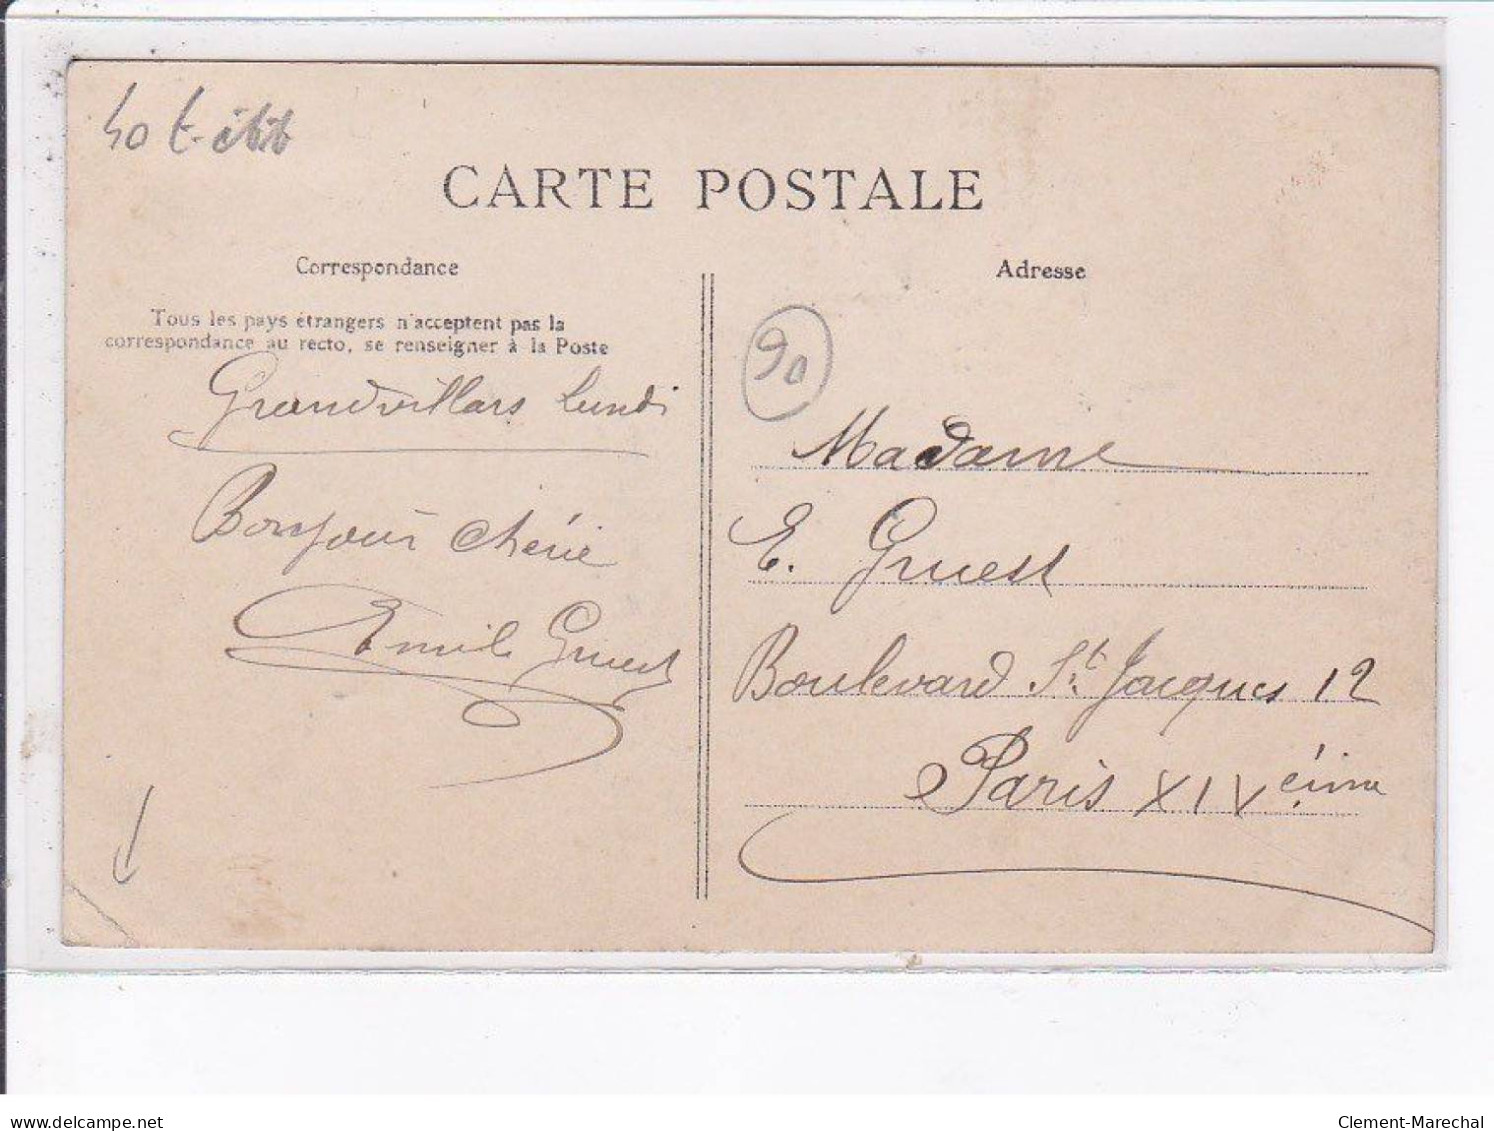 CARTE POSTALE
Correspondance
Tous les pays étrangers n'acceptent pas la
correspondance au recto, se renseigner à la Poste
Grandvillars Lundi
Bonjour chérie
Emile Gruest
Adresse
90
Madame
E. Gruest
Boulevard St. Jacques 12
Paris XIVéime
delcampe.net
Clement-Marechal